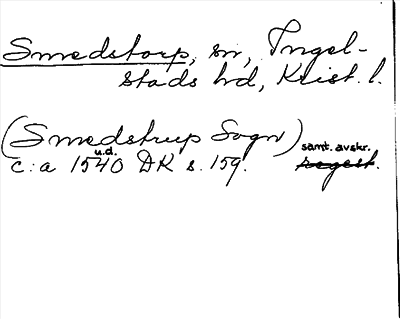 Smedstorp, sn, Ingel-
stads hd, Krist. l.
(Smedstrup Sogn) samt. avskr.
u.d.
c:a 1540 DK s. 159. regest.